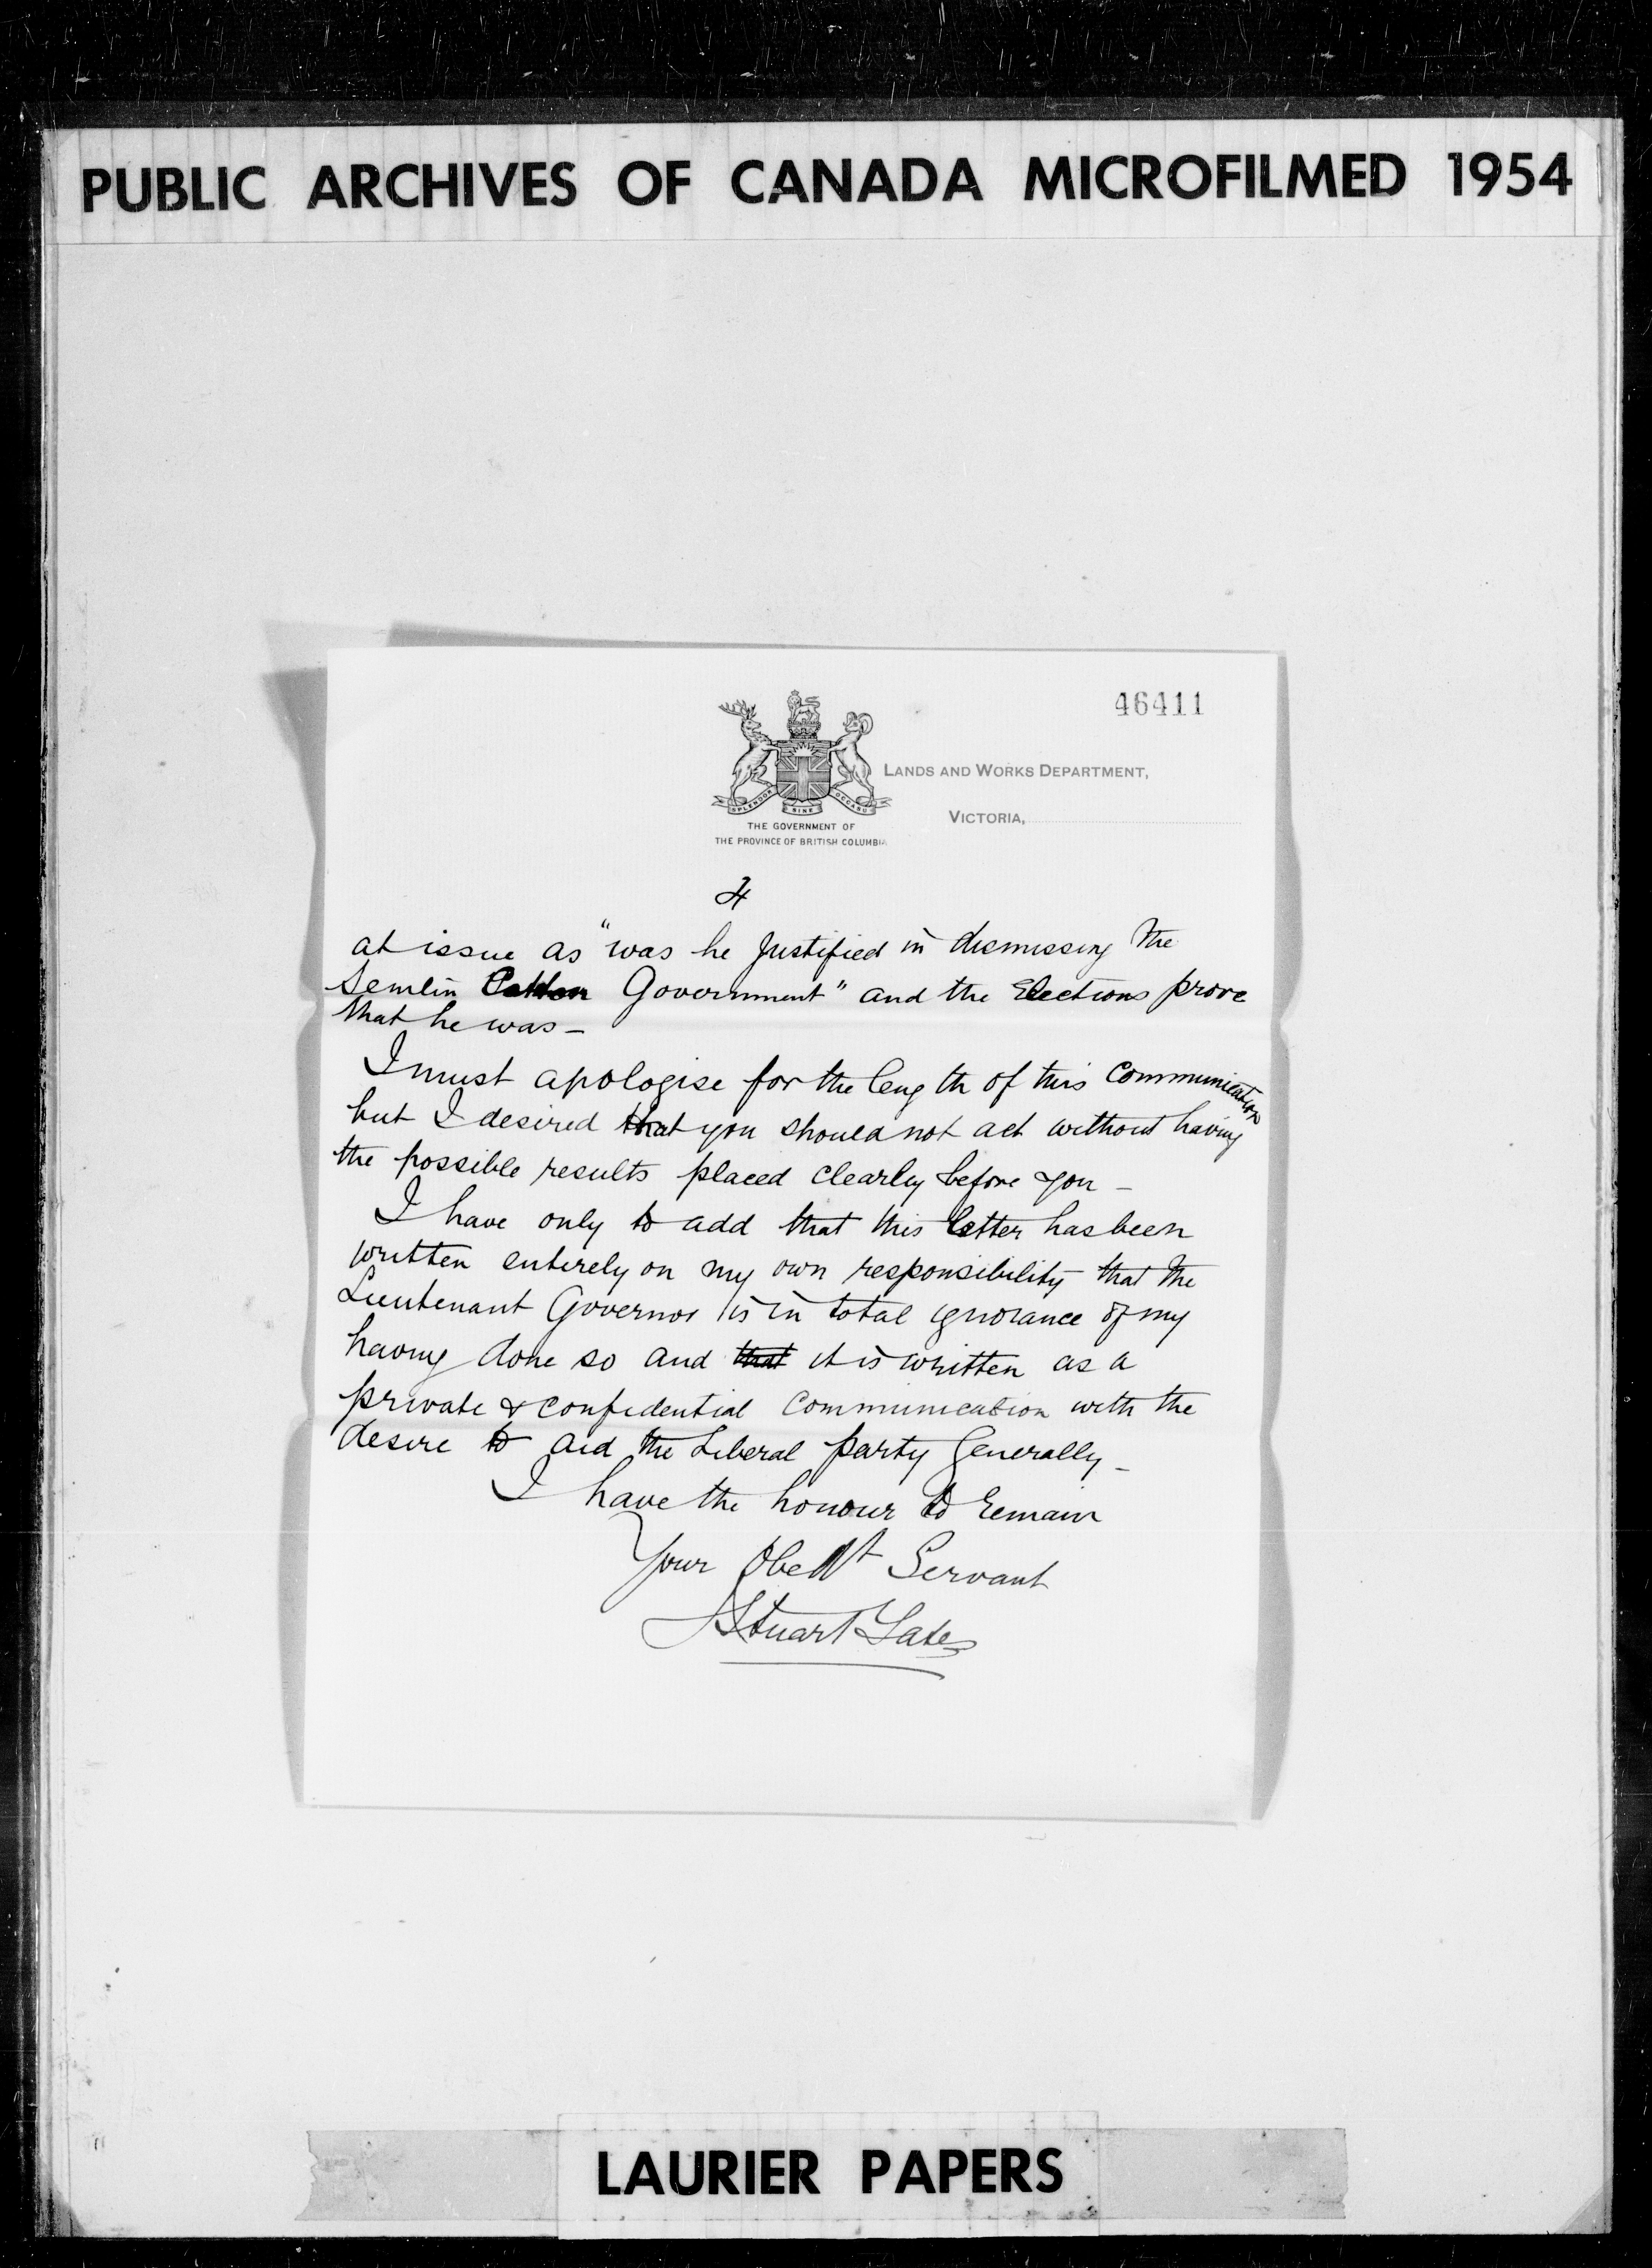 PUBLIC ARCHIVES OF CANADA MICROFILMED 1954
46411
SPLENDOR SINE OCCASU
LANDS AND WORKS DEPARTMENT,
THE GOVERNMENT OF
THE PROVINCE OF BRITISH COLUMBIA
VICTORIA,
4
at issue as "was he Justified in dismissing the
Semlin Government" and the Elections prove
that he was –
I must apologise for the length of this Communication
but I desired that you should not act without having
the possible results placed clearly before you –
I have only to add that this letter has been
written entirely on my own responsibility that the
Lieutenant Governor is in total ignorance of my
having done so and that it is written as a
private & confidential Communication with the
desire to aid the Liberal party Generally –
I have the honour to remain
Your Obedt Servant
J Stuart Yates
LAURIER PAPERS